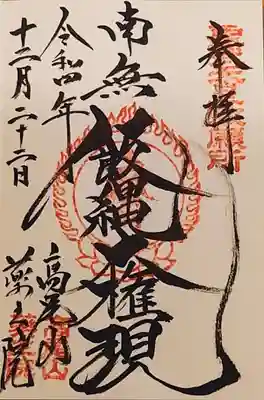 奉拝
南無飯縄大権現
令和四年
十二月二十二日
高尾山
薬王院